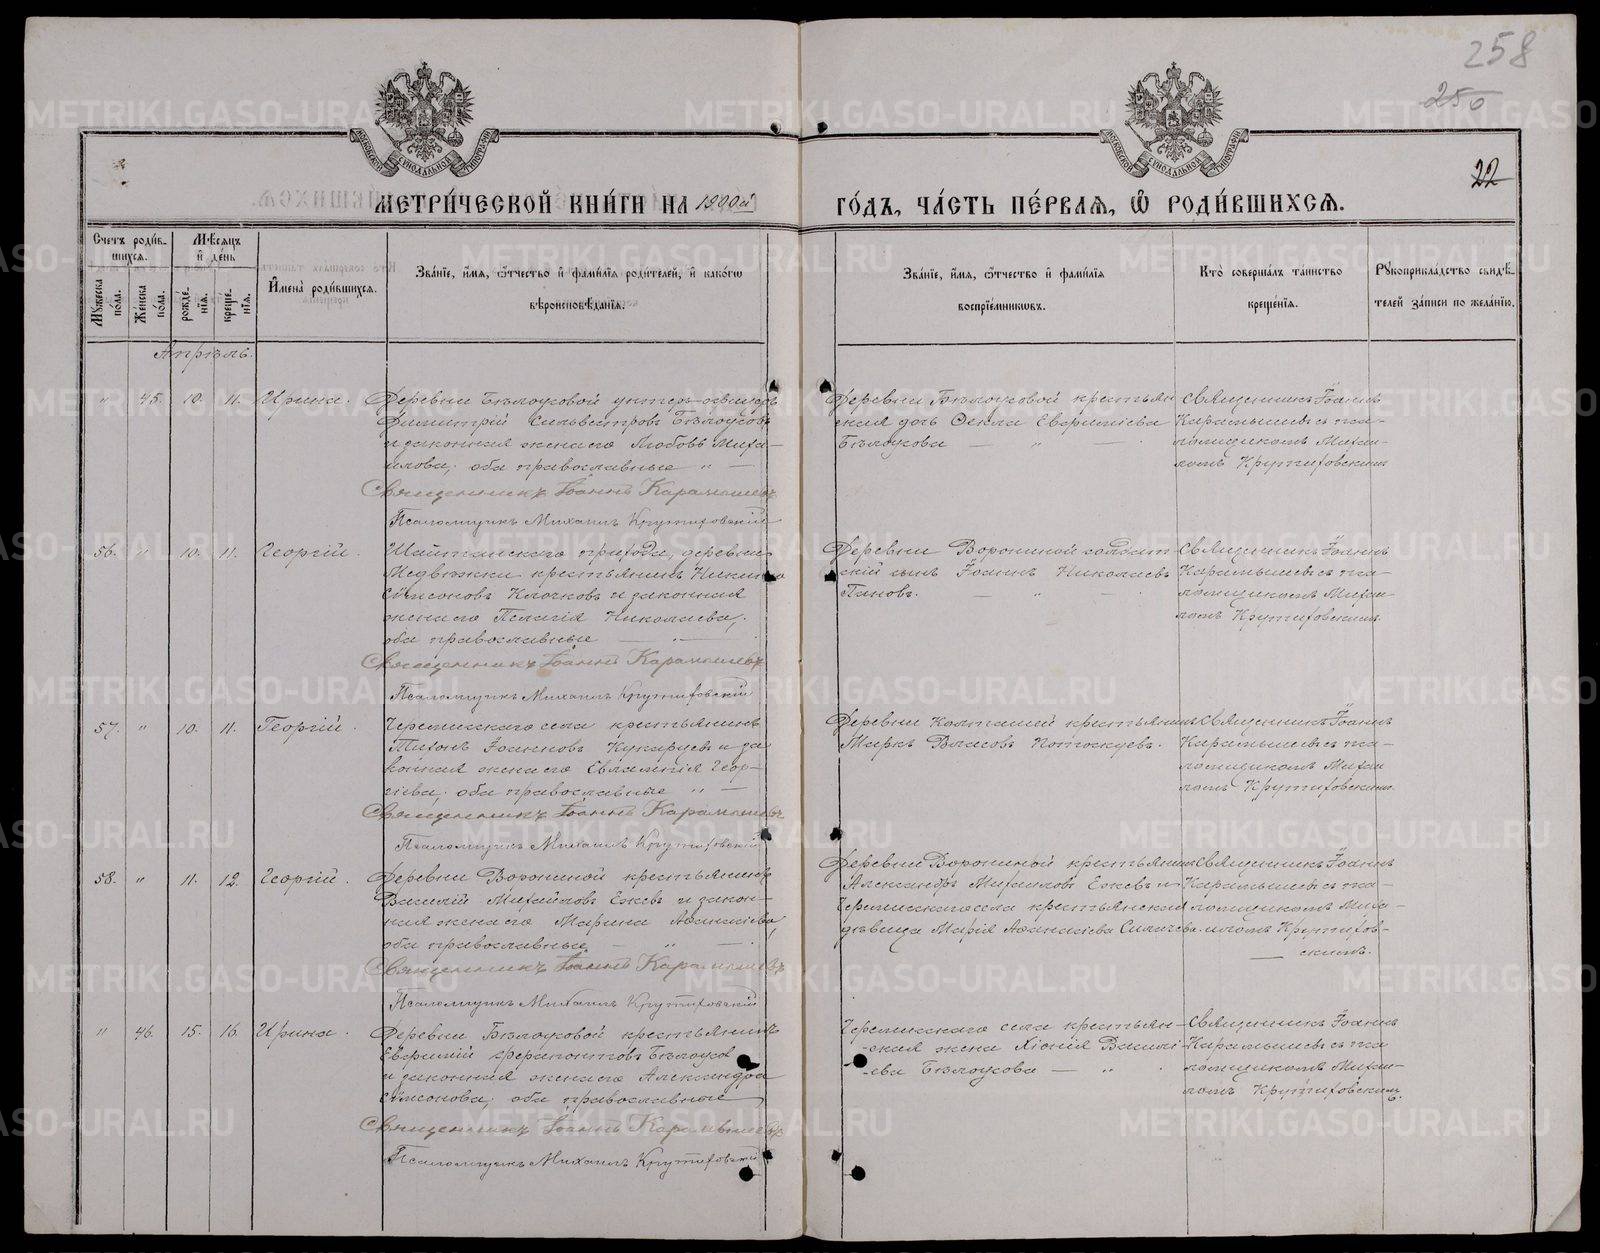 258
250
22
МЕТРИ́ЧЕСКОЙ КНИ́ГИ НА 1900й
ГО́ДЪ, ЧА́СТЬ ПЕ́РВАЯ, Ѽ РОДИ́ВШИХСЯ.
Счетъ роди́вшихся.
Му́жеска по́ла.
Же́нска по́ла.
Мѣ́сяцъ и҆ де́нь
рожде́нїя.
креще́нїя.
И҆мена̀ роди́вшихся.
Зва́нїе, и҆́мя, ѻ҆́тчество и҆ фами́лїя роди́телей, и҆ како́гѡ
вѣроисповѣ́данїя.
Зва́нїе, и҆́мя, ѻ҆́тчество и҆ фами́лїя
воспрїе́мниковъ.
Кто̀ соверша́лъ та́инство
креще́нїя.
Рꙋкоприкла́дство свидѣ́-
телей за́писи по жела́нїю.
Апрѣль.
" 45. 10. 11. Ирина.
Деревни Бѣлоусовой унтеръ-офицеръ
Димитрій Сильвестровъ Бѣлоусовъ
и законная жена его Любовь Миха-
илова, оба православные " —
Священникъ Іоаннъ Карамышевъ
Псаломщикъ Михаилъ Крутиховскій
Деревни Бѣлоусовой крестьян
ская дочь Ѳекла Евфиміева
Бѣлоусова — " —
Священникъ Іоаннъ
Карамышевъ съ пса-
ломщикомъ Михаи-
ломъ Крутиховскимъ
56. " 10. 11. Георгій.
Шайтанскаго прихода, деревни
Медвѣжки крестьянинъ Никита
Сѵмеоновъ Клочковъ и законная
жена его Пелагія Николаева,
оба православные — " — .
Священникъ Іоаннъ Карамышевъ
Псаломщикъ Михаилъ Крутиховскій
Деревни Ворониной солдат
скій сынъ Іоаннъ Николаевъ
Пановъ. — " — .
Священникъ Іоаннъ
Карамышевъ съ пса-
ломщикомъ Михаи-
ломъ Крутиховскимъ
57. " 10. 11. Георгій.
Черемисскаго села крестьянинъ
Тихонъ Іоанновъ Кукарцевъ и за
конная жена его Евлампія Геор-
гіева, оба православные " —
Священникъ Іоаннъ Карамышевъ
Псаломщикъ Михаилъ Крутиховскій
Деревни Колташей крестьянинъ
Маркъ Власовъ Потоскуевъ.
Священникъ Іоаннъ
Карамышевъ съ пса-
ломщикомъ Михаи
ломъ Крутиховскимъ
58. " 11. 12. Георгій.
Деревни Ворониной крестьянинъ
Василій Михайловъ Ежевъ и закон-
ная жена его Марина Аѳанасіева,
оба православные — " — .
Священникъ Іоаннъ Карамышевъ
Псаломщикъ Михаилъ Крутиховскій
Деревни Ворониной крестьянинъ
Александръ Михаиловъ Ежевъ и
Черемисскаго села крестьянская
дѣвица Марія Аѳанасіева Силачева.
Священникъ Іоаннъ
Карамышевъ съ пса-
ломщикомъ Миха-
иломъ Крутихов-
— скимъ.
" 46. 15. 16. Ирина.
Деревни Бѣлоусовой крестьянинъ
Евфимій Ферапонтовъ Бѣлоусов
и законная жена его Александра
Сѵмеонова, оба православные
Священникъ Іоаннъ Карамышевъ
Псаломщикъ Михаилъ Крутиховскій
Черемисскаго села крестьян-
-ская жена Хіонія Васильі-
-ева Бѣлоусова — " .
Священникъ Іоаннъ
Карамышевъ съ пса
ломщикомъ Михаи-
ломъ Крутиховскимъ.